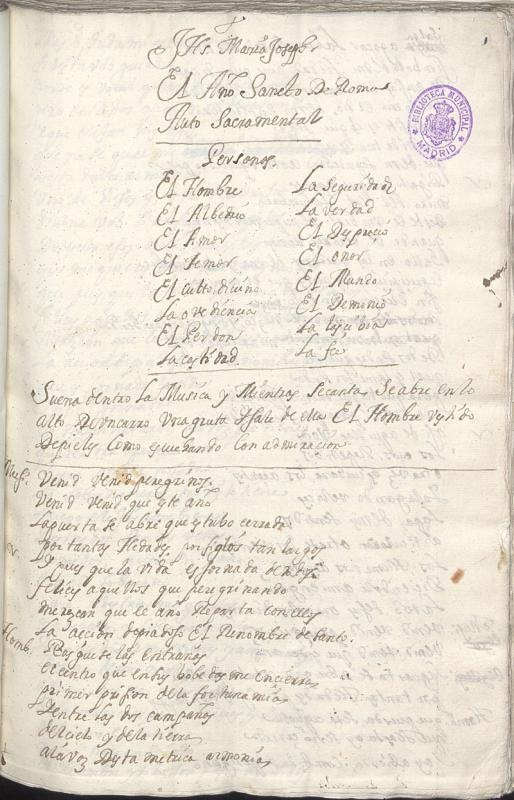 JHs. Maria Joseph
El Año Sancto De Roma
Auto Sacramental
BIBLIOTECA MUNICIPAL
MADRID
Personas.
El Hombre
El Albedrio
El Amor
El temor
El culto divino
La ovediencia
El Perdon
La castidad.
La Seguridad
La verdad
El Desprecio
El onor
El Mundo
El Demonio
La lascibia
La fee
Suena dentro La Musica y Mientras Secanta, Seabre en lo
alto De un carro Una gruta y Sale de ella El Hombre vestido
De pieles Como escuchando Con admiracion
Mus.ª Venid venid peregrinos
Venid Venid que este año
La puerta se abre que estubo cerrada
por tantas Hedades, por siglos tan largos
Y pues que la vida es jornada de todos
felices aquellos que peregrinando
merezcan que le año Reparta con ellos
La accion de piadoso El Renombre de santo.
Homb. que las entrañas
el centro que entus bobedas me encierras
primer prision de la fortuna mia
Dentre las dos campañas
del cielo y de la tierra
a la voz De esta metrica armonia